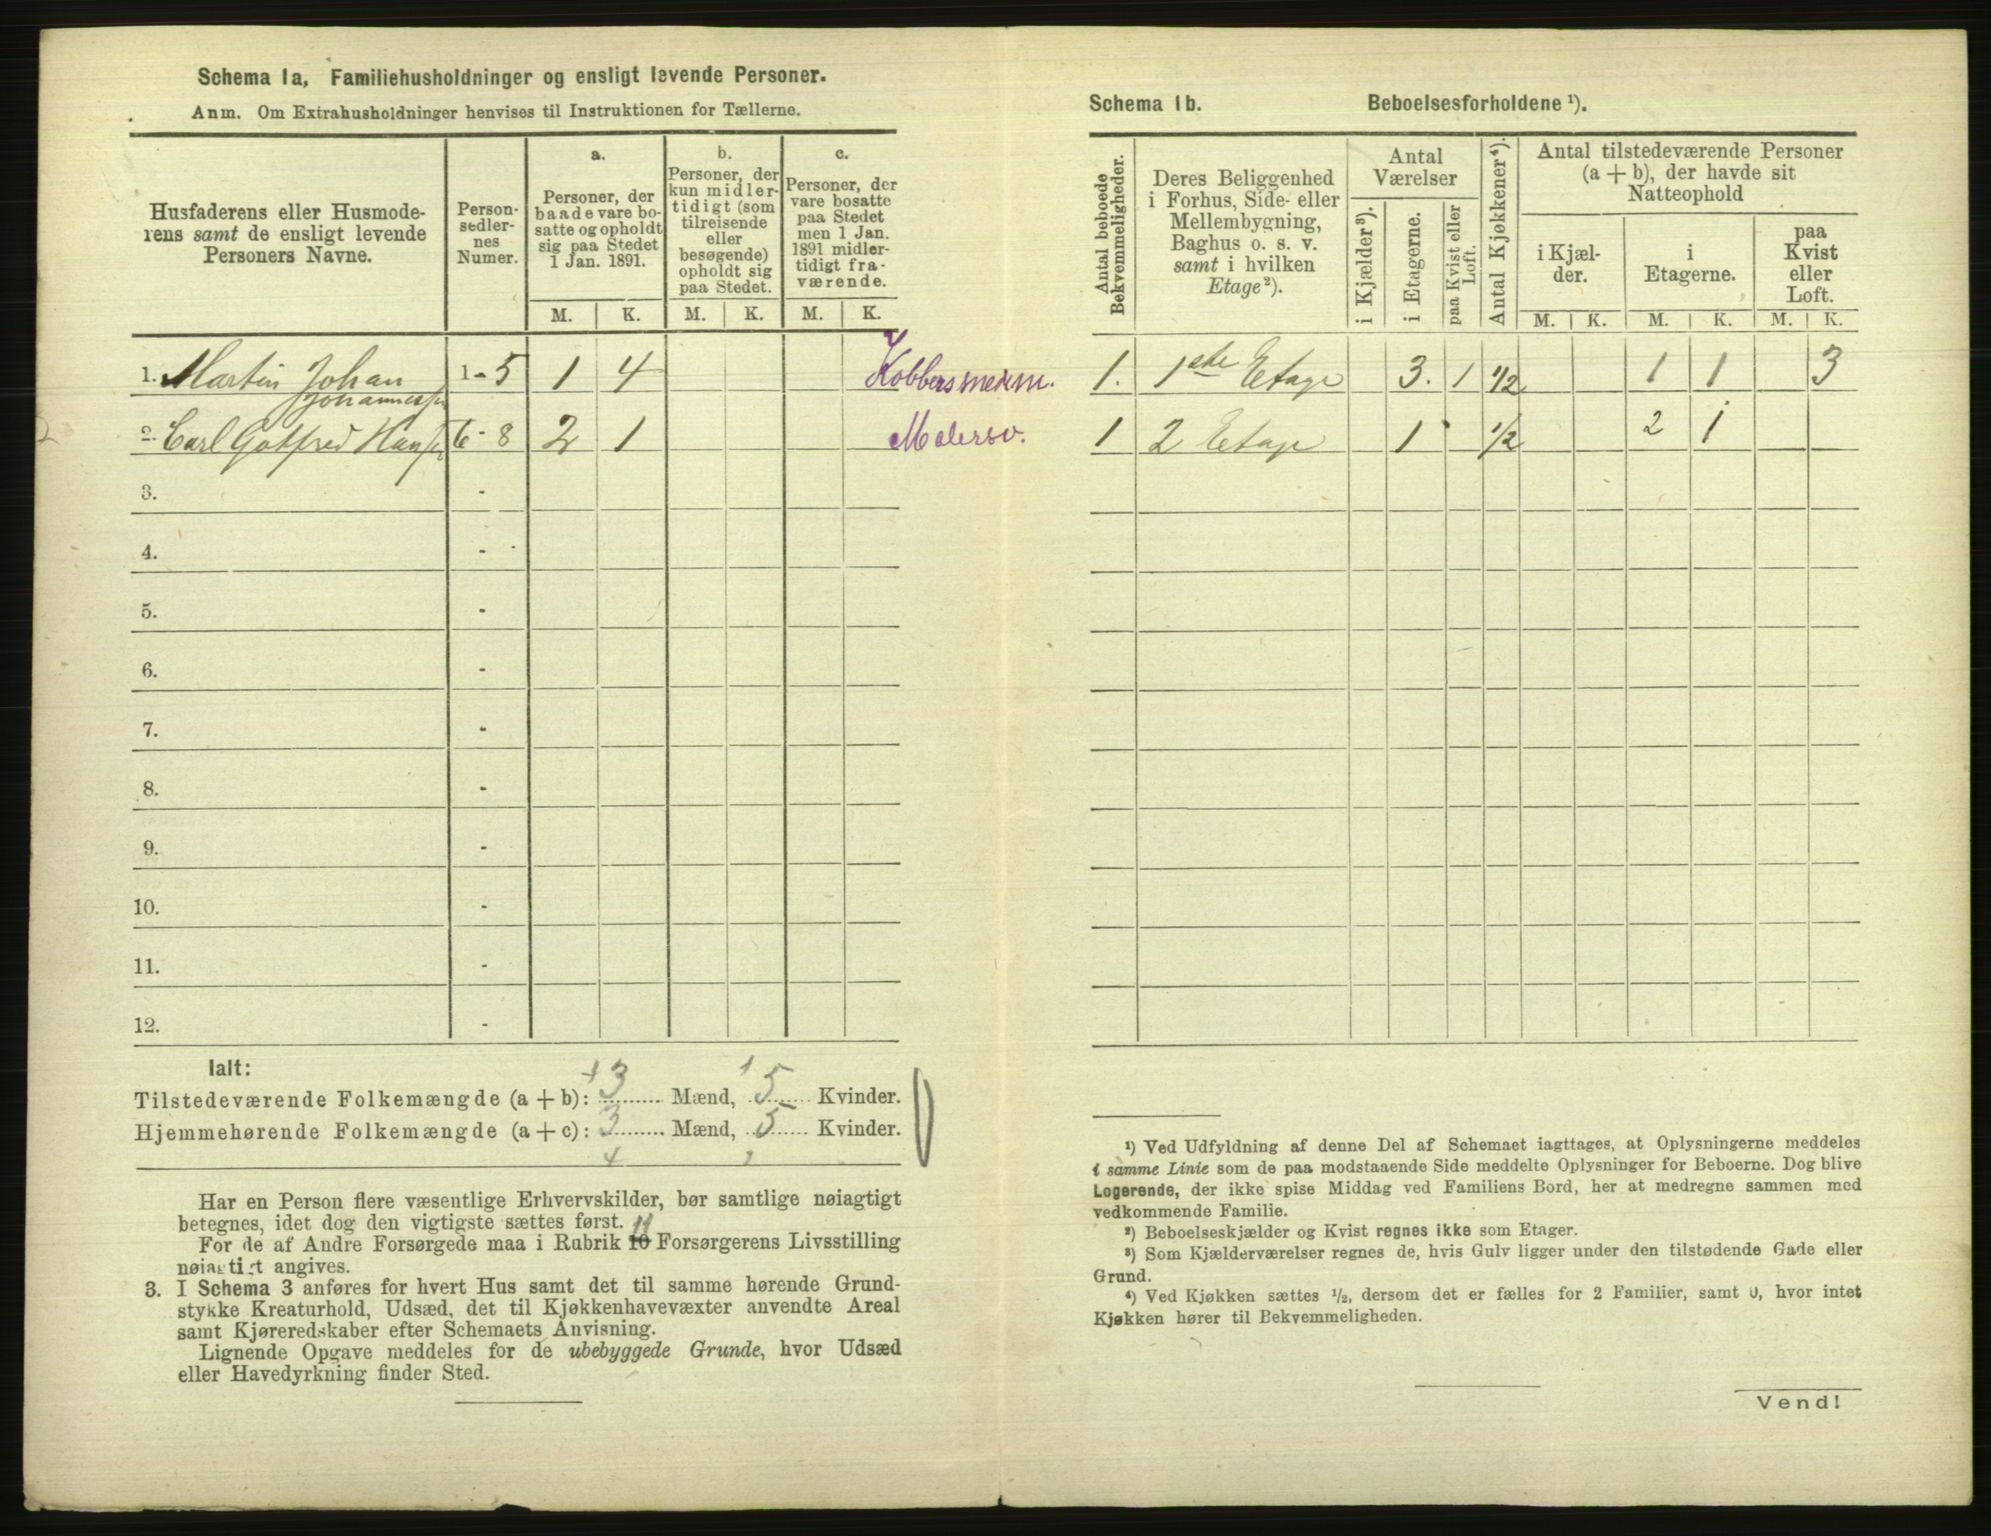 Schema Ia, Familiehusholdninger og ensligt levende Personer.
Anm. Om Extrahusholdninger henvises til Instruktionen for Tællerne.
Husfaderens eller Husmode-
rens samt de ensligt levende
Personers Navne.
Person-
sedler-
nes
Numer.
a.
Personer, der
baade vare bo-
satte og opholdt
sig paa Stedet
1 Jan. 1891.
b.
Personer, der
kun midler-
tidigt (som
tilreisende
eller
besøgende)
opholdt sig
paa Stedet.
c.
Personer, der
vare bosatte
paa Stedet
men 1 Jan.
1891 midler-
tidigt fra-
værende.
M. K. M. K. M. K.
1. Martin Johan 1-5 1 4
Johannessen
2. Carl Gotfred Hansen 6-8 2 1 Malersv.
3. -
4. -
5. -
6. -
7. -
8. -
9. -
10. -
11. -
12. -
Ialt:
Tilstedeværende Folkemængde (a + b): 3 Mænd, 5 Kvinder.
Hjemmehørende Folkemængde (a + c): 3 Mænd, 5 Kvinder.
Har en Person flere væsentlige Erhvervskilder, bør samtlige nøiagtigt
betegnes, idet dog den vigtigste sættes først.
11
For de af Andre Forsørgede maa i Rubrik 10 Forsørgerens Livsstilling
nøiagtigt angives.
3. I Schema 3 anføres for hvert Hus samt det til samme hørende Grund-
stykke Kreaturhold, Udsæd, det til Kjøkkenhavevæxter anvendte Areal
samt Kjøreredskaber efter Schemaets Anvisning.
Lignende Opgave meddeles for de ubebyggede Grunde, hvor Udsæd
eller Havedyrkning finder Sted.
Schema Ib. Beboelsesforholdene ¹).
Antal beboede
Bekvemmeligheder.
Deres Beliggenhed
i Forhus, Side- eller
Mellembygning,
Baghus o. s. v.
samt i hvilken
Etage²).
Antal
Værelser
i Kjælder³).
i Etagerne.
paa Kvist eller
Loft.
Antal Kjøkkener⁴).
Antal tilstedeværende Personer
(a + b), der havde sit
Natteophold
i Kjæl-
der.
i
Etagerne.
paa
Kvist
eller
Loft.
M. K. M. K. M. K.
1. 1ste Etage 3. 1 1/2 1 1 3
1 2 Etage 1 1/2 2 1
¹) Ved Udfyldning af denne Del af Schemaet iagttages, at Oplysningerne meddeles
i samme Linie som de paa modstaaende Side meddelte Oplysninger for Beboerne. Dog blive
Logerende, der ikke spise Middag ved Familiens Bord, her at medregne sammen med
vedkommende Familie.
²) Beboelseskjælder og Kvist regnes ikke som Etager.
³) Som Kjælderværelser regnes de, hvis Gulv ligger under den tilstødende Gade eller
Grund.
⁴) Ved Kjøkken sættes ½, dersom det er fælles for 2 Familier, samt 0, hvor intet
Kjøkken hører til Bekvemmeligheden.
Vend!